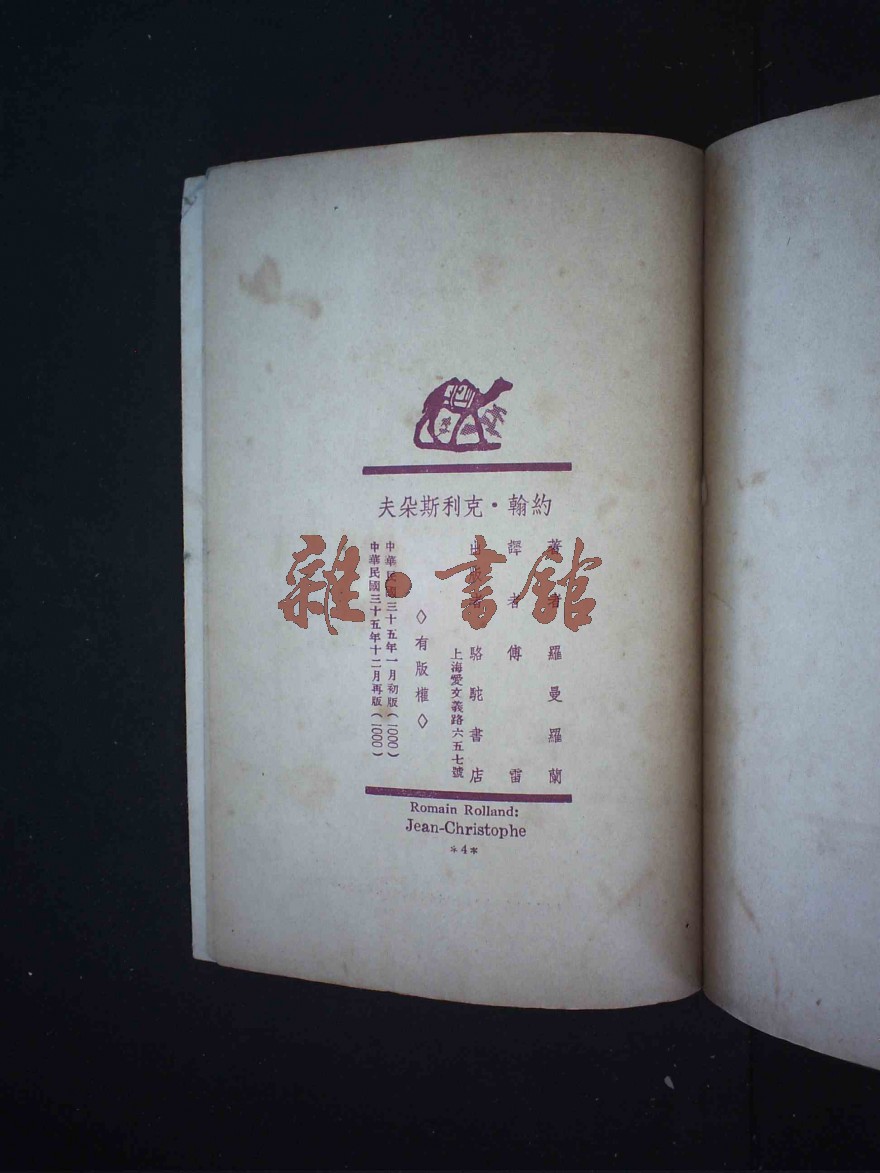 約翰·克利斯朵夫
著者 羅曼羅蘭
譯者 傅雷
出版者 駱駝書店
上海愛文義路六五七號
◇有版權◇
中華民國三十五年一月初版(1000)
中華民國三十五年十二月再版(1000)
Romain Rolland:
Jean-Christophe
*4*
雜·書館